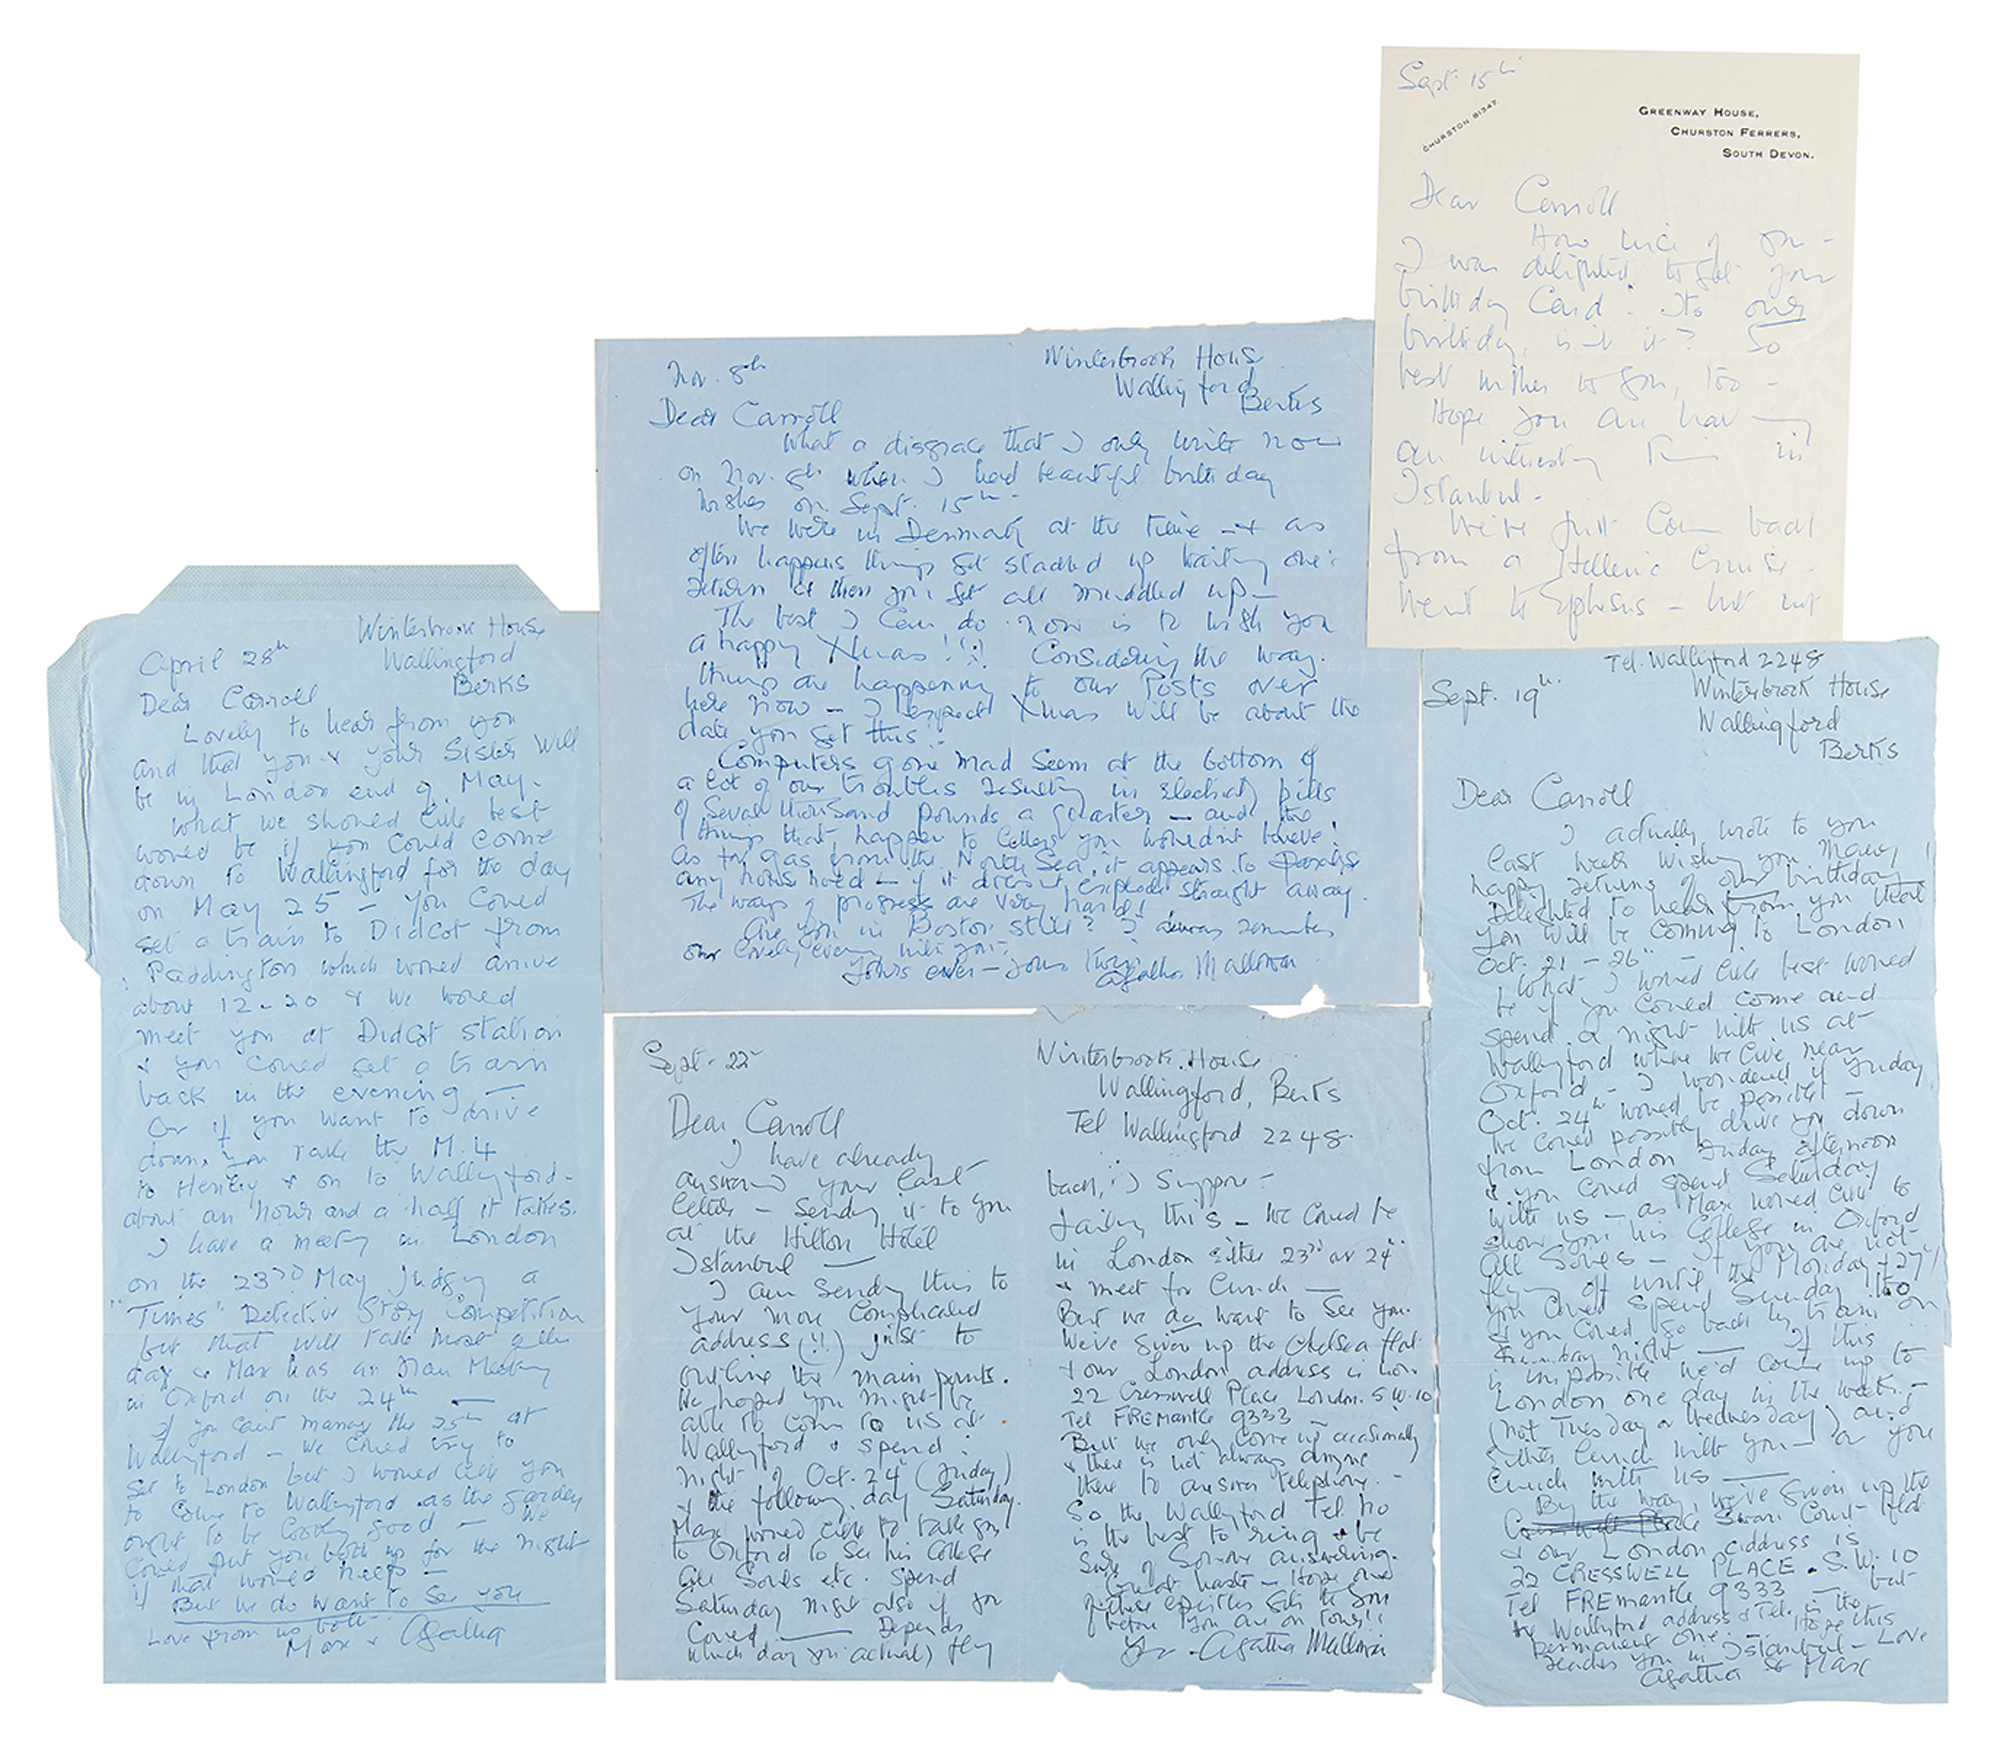 April 28th
Winterbrook House
Wallingford
Berks
Dear Carroll
Lovely to hear from you
and that you & your Sister will
be in London end of May.
What we should like best
would be if you could come
down to Wallingford for the day
on May 25 – you could
get a train to Didcot from
Paddington which would arrive
about 12-20 & we would
meet you at Didcot station
& you could get a train
back in the evening —
Or if you want to drive
down, you take the M.4
to Henley & on to Wallingford -
about an hour and a half it takes.
I have a meeting in London
on the 23rd May judging a
"Times" Detective Story Competition
but that will take most of the
day & Max has an Iran Meeting
in Oxford on the 24th —
If you can't manage the 25th at
Wallingford – we could try to
get to London but I would like you
to come to Wallingford as the garden
ought to be looking good — We
could put you both up for the night
if that would help —
But we do want to see you
Love from us both
Max & Agatha
Nov. 8th
Winterbrook House
Wallingford
Berks
Dear Carroll
What a disgrace that I only write now
on Nov. 8th when I had beautiful birthday
wishes on Sept. 15th -
We were in Denmark at the time – & as
often happens things get stacked up waiting one's
return & then you get all muddled up –
The best I can do now is to wish you
a happy Xmas !!! Considering the way
things are happening to our Posts over
here now – I expect Xmas will be about the
date you get this.
Computers gone mad seem at the bottom of
a lot of our troubles resulting in electricity bills
of several thousand pounds a quarter – and the
things that happen to letters you wouldn't believe!
As for gas from the North Sea, it appears to
any household – if it doesn't explode straight away.
The ways of progress are very hard!
Are you in Boston still? I always remember
our lovely evening with you -
Yours ever – your Twin
Agatha Mallowan
Sept 15th
CHURSTON 81347.
GREENWAY HOUSE,
CHURSTON FERRERS,
SOUTH DEVON.
Dear Carroll
How nice of you –
I was delighted to get your
birthday Card. Its our
birthday, isn't it? So
best wishes to you, too –
Hope you are having
an interesting time in
Istanbul -
We've just come back
from a Hellenic Cruise -
Went to Ephesus – but not
Sept. 22
Winterbrook House
Wallingford, Berks
Tel Wallingford 2248.
Dear Carroll
I have already
answered your last
letter – sending it to you
at the Hilton Hotel
Istanbul —
I am sending this to
your more complicated
address (!!) just to
outline the main points.
We hoped you might be
able to come to us at
Wallingford & spend
night of Oct. 24 (Friday)
& the following day Saturday.
Max would like to take you
to Oxford to see his College
All Souls etc. Spend
Saturday night also if you
could — Depends
which day you actually fly
back, I suppose –
Failing this – we could be
in London either 23rd or 24th
& meet for lunch —
But we do want to see you.
We've given up the Chelsea flat
& our London address is now
22 Cresswell Place London. S.W.10
Tel FREmantle 9333 –
But we only come up occasionally
& there is not always anyone
there to answer telephone. –
So the Wallingford Tel. No
is the best to ring & be
sure of someone answering.
Great haste – Hope one
of these epistles gets to you
before you are on tour!!
Yrs. Agatha Mallowan
Tel. Wallingford 2248
Sept. 19th
Winterbrook House
Wallingford
Berks
Dear Carroll
I actually wrote to you
last week wishing you Many
happy returns of our birthday!
Delighted to hear from you that
you will be coming to London
Oct. 21 – 26th –
What I would like best would
be if you could come and
spend a night with us at
Wallingford where we live near
Oxford – I wondered if Friday
Oct. 24th would be possible –
We could possibly drive you down
from London Friday afternoon
& you could spend Saturday
with us – as Max would like to
show you his College in Oxford
All Souls – If you are not
flying off until the Monday 27th
you could spend Sunday too
& you could go back by train on
Sunday night — If this
is impossible we'd come up to
London one day in the week –
(not Tuesday or Wednesday) and
either lunch with you – or you
lunch with us —
By the way, we've given up the
Swan Court flat
& our London address is
22 CRESSWELL PLACE. S.W. 10
Tel FREmantle 9333 – but
the Wallingford address & Tel. is the
permanent one. – Hope this
reaches you in Istanbul – Love
Agatha & Max